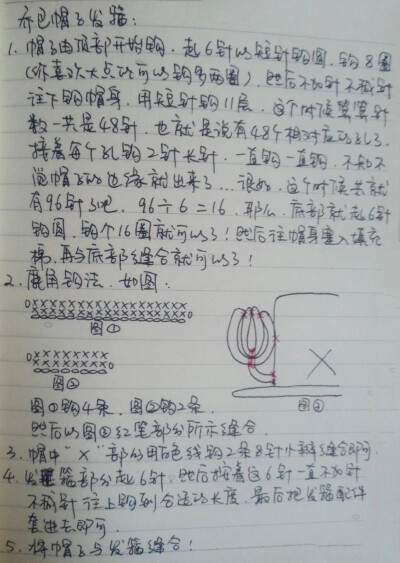 乔巴帽子发箍:
1. 帽子由顶部开始钩,起6针以短针钩圆,钩8圈
(你喜欢大点的可以钩多两圈),然后不加针不减针
往下钩帽身,用短针钩11层,这个时候算算针
数一共是48针,也就是说有48个相对应的孔了,
接着每个孔钩2针长针,一直钩一直钩,不知不
觉帽子的边缘就出来了...很好,这个时候共就
有96针了吧,96÷6=16,那么,底部就起6针
钩圆,钩个16圈就可以了!然后往帽身塞入填充
棉,再与底部缝合就可以了!
2. 鹿角钩法,如图:
图①
图②
图③
图①钩4条,图②钩2条,
然后以图③红笔部分所示缝合.
3. 帽中"×"部分用白色线钩2条8针小辫缝合即可.
4. 发箍部分起6针,然后接着这6针一直不加针
不减针往上钩到合适的长度,最后把发箍配件
套进去即可.
5. 将帽子与发箍缝合!